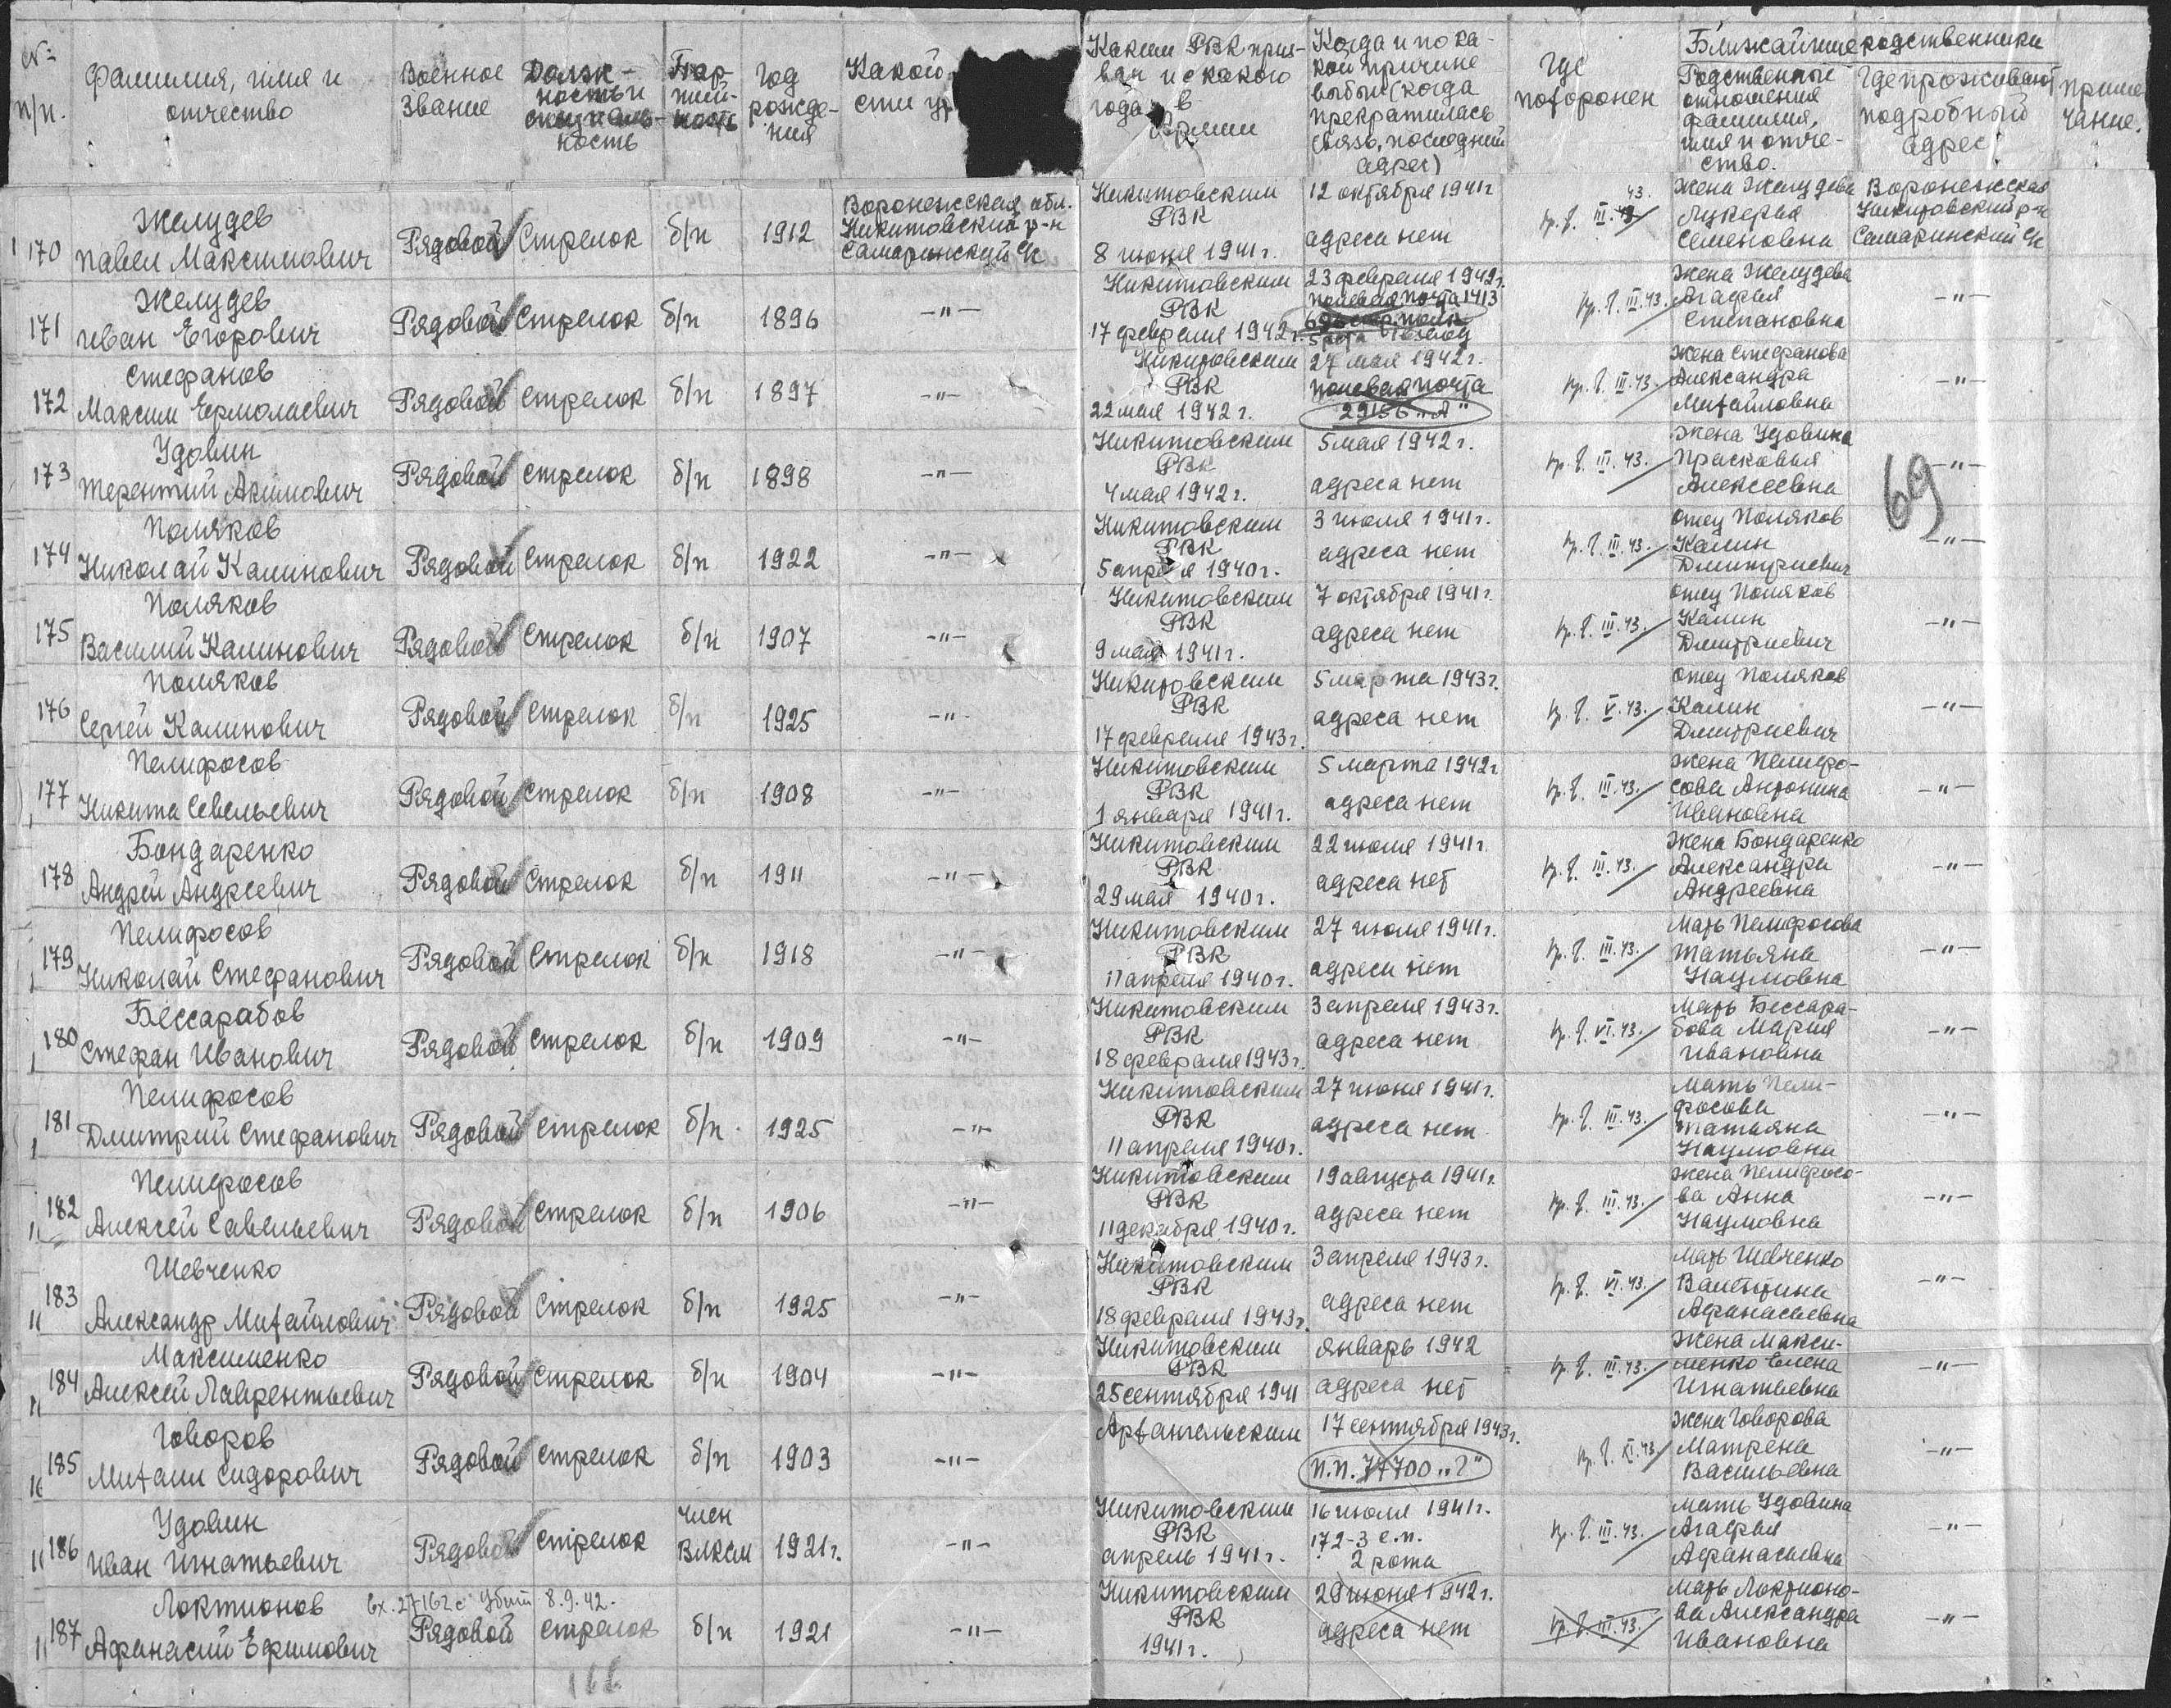 № п/п.
Фамилия, имя и отчество
Военное звание
Должность и специальность
Партийность
Год рождения
Какой
сти ур
Каким РВК призван и с какого года в Армии
Когда и по какой причине выбыл (когда прекратилась связь, последний адрес)
Где похоронен
Ближайшие родственники
Родственные отношения фамилия, имя и отчество.
Где проживают подробный адрес
Примечание.
170 Желудев Павел Максимович Рядовой Стрелок б/п 1912 Воронежская обл. Никитовский р-н Самаринский с/с Никитовским РВК 8 июня 1941г. 12 октября 1941г адреса нет пр. б. III.43. Жена Желудева Лукерья Семеновна Воронежская Никитовский р-н Самаринский с/с
171 Желудев Иван Егорович Рядовой Стрелок б/п 1896 -"- Никитовским РВК 17 февраля 1942г. 23 февраля 1942г. полевая почта 1413 пр. б. III.43. Жена Желудева Агафья Степановна -"-
172 Стефанов Максим Ермолаевич Рядовой стрелок б/п 1897 -"- Никитовским РВК 22 мая 1942г. 27 мая 1942г. полевая почта 29156 "А" пр. б. III.43. Жена Стефанова Александра Михайловна -"-
173 Удовин Терентий Акимович Рядовой стрелок б/п 1898 -"- Никитовским РВК 4 мая 1942г. 5 мая 1942г. адреса нет пр. б. III.43. Жена Удовина Прасковья Алексеевна -"-
69
174 Поляков Николай Калинович Рядовой Стрелок б/п 1922 -"- Никитовским РВК 5 апреля 1940г. 3 июля 1941г. адреса нет пр. б. III.43. отец Поляков Калин Дмитриевич -"-
175 Поляков Василий Калинович Рядовой Стрелок б/п 1907 -"- Никитовским РВК 9 мая 1941г. 7 октября 1941г. адреса нет пр. б. III.43. отец Поляков Калин Дмитриевич -"-
176 Поляков Сергей Калинович Рядовой Стрелок б/п 1925 -"- Никитовским РВК 17 февраля 1943г. 5 марта 1943г. адреса нет пр. б. V.43. отец Поляков Калин Дмитриевич -"-
177 Пелифосов Никита Савельевич Рядовой стрелок б/п 1908 -"- Никитовским РВК 1 января 1941г. 5 марта 1942г адреса нет пр. б. III.43. Жена Пелифосова Антонина Ивановна -"-
178 Бондаренко Андрей Андреевич Рядовой стрелок б/п 1911 -"- Никитовским РВК 29 мая 1940г. 22 июля 1941г. адреса нет пр. б. III.43. Жена Бондаренко Александра Андреевна -"-
179 Пелифосов Николай Стефанович Рядовой Стрелок б/п 1918 -"- Никитовским РВК 11 апреля 1940г. 27 июля 1941г. адреса нет пр. б. III.43. Мать Пелифосова Татьяна Наумовна -"-
180 Бессарабов Стефан Иванович Рядовой Стрелок б/п 1909 -"- Никитовским РВК 18 февраля 1943г. 3 апреля 1943г. адреса нет пр. б. VI.43. Мать Бессарабова Мария Ивановна -"-
181 Пелифосов Дмитрий Стефанович Рядовой стрелок б/п. 1925 -"- Никитовским РВК 11 апреля 1940г. 27 июня 1941г. адреса нет пр. б. III.43. Мать Пелифосова Татьяна Наумовна -"-
182 Пелифосов Алексей Савельевич Рядовой Стрелок б/п 1906 -"- Никитовским РВК 11 декабря 1940г. 19 августа 1941г. адреса нет пр. б. III.43. Жена Пелифосова Анна Наумовна -"-
183 Шевченко Александр Михайлович Рядовой Стрелок б/п 1925 -"- Никитовским РВК 18 февраля 1943г. 3 апреля 1943г. адреса нет пр. б. VI.43. Мать Шевченко Валентина Афанасьевна -"-
184 Максименко Алексей Лаврентьевич Рядовой Стрелок б/п 1904 -"- Никитовским РВК 25 сентября 1941 январь 1942 адреса нет пр. б. III.43. Жена Максименко Елена Игнатьевна -"-
185 Говоров Михаил Сидорович Рядовой стрелок б/п 1903 -"- Архангельским 17 сентября 1943г. п.п. 77700 "г" пр. б. XI.43 Жена Говорова Матрена Васильевна -"-
186 Удовин Иван Игнатьевич Рядовой стрелок член ВЛКСМ 1921г. -"- Никитовским РВК апрель 1941г. 16 июля 1941г. 172-3 с.п. 2 рота пр. б. III.43. Мать Удовина Агафья Афанасьевна -"-
вх. 27162с убит 8.9.42.
187 Локтионов Афанасий Ефимович Рядовой стрелок б/п 1921 -"- Никитовским РВК 1941г. 29 июня 1942г. адреса нет пр. б. III.43. Мать Локтионова Александра Ивановна -"-
166